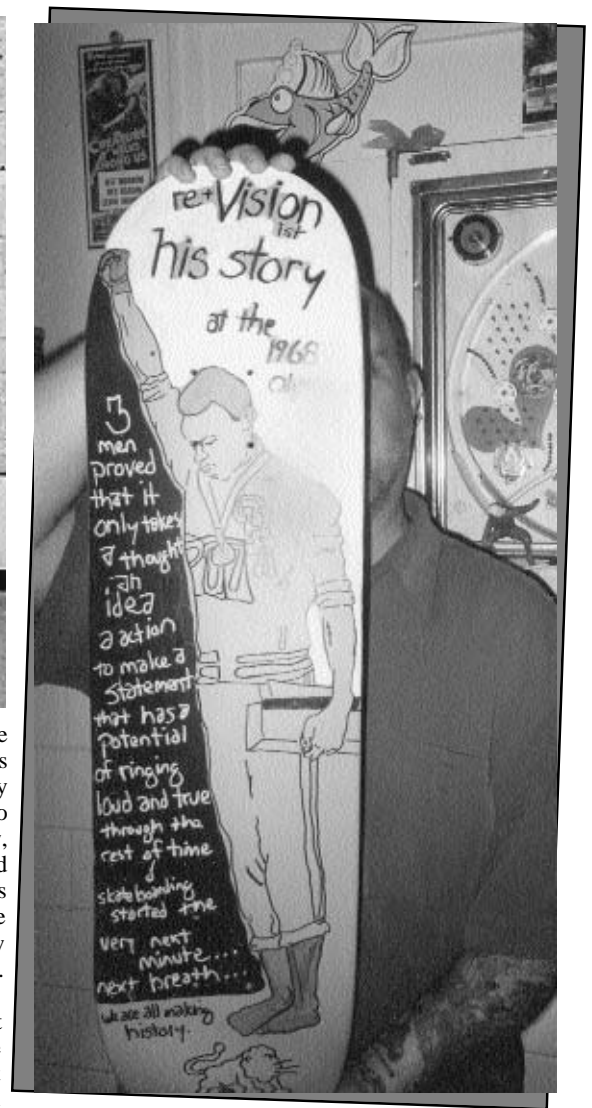 re+Vision
ist
his story
at the
1968
3
men
proved
that it
only takes
a thought
an
idea
a action
to make a
statement
that has a
potential
of ringing
loud and true
through the
rest of time
skateboarding
started the
very next
minute...
next breath...
we are all making
history.